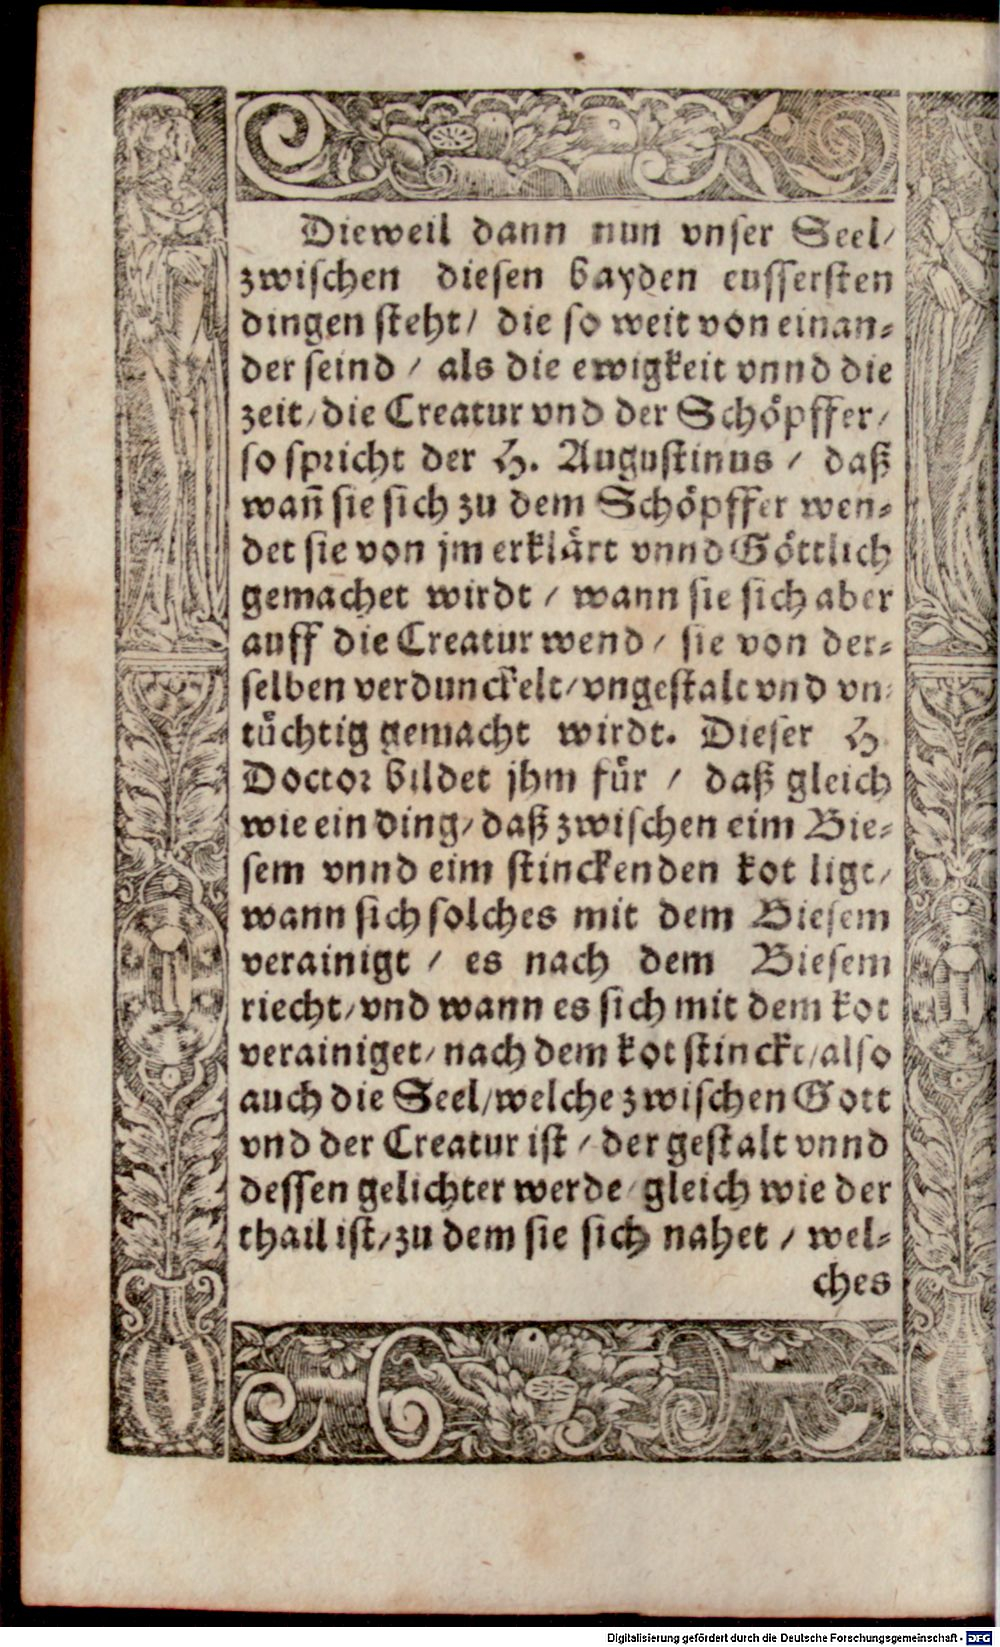 Dieweil dann nun vnser Seel/
zwischen diesen bayden eussersten
dingen steht/ die so weit von einan⸗
der seind / als die ewigkeit vnnd die
zeit/ die Creatur vnd der Schöpffer/
so spricht der H. Augustinus / daß
wañ sie sich zu dem Schöpffer wen⸗
det sie von jm erklärt vnnd Göttlich
gemachet wirdt / wann sie sich aber
auff die Creatur wend / sie von der⸗
selben verdunckelt/ vngestalt vnd vn⸗
tüchtig gemacht wirdt. Dieser H
Doctor bildet jhm für / daß gleich
wie ein ding/ daß zwischen eim Bie⸗
sem vnnd eim stinckenden kot ligt/
wann sich solches mit dem Biesem
verainigt / es nach dem Biesem
riecht/ vnd wann es sich mit dem kot
verainiget/ nach dem kot stinckt/ also
auch die Seel/ welche zwischen Gott
vnd der Creatur ist / der gestalt vnnd
dessen gelichter werde/ gleich wie der
thail ist/ zu dem sie sich nahet / wel⸗
ches
Digitalisierung gefördert durch die Deutsche Forschungsgemeinschaft - DFG